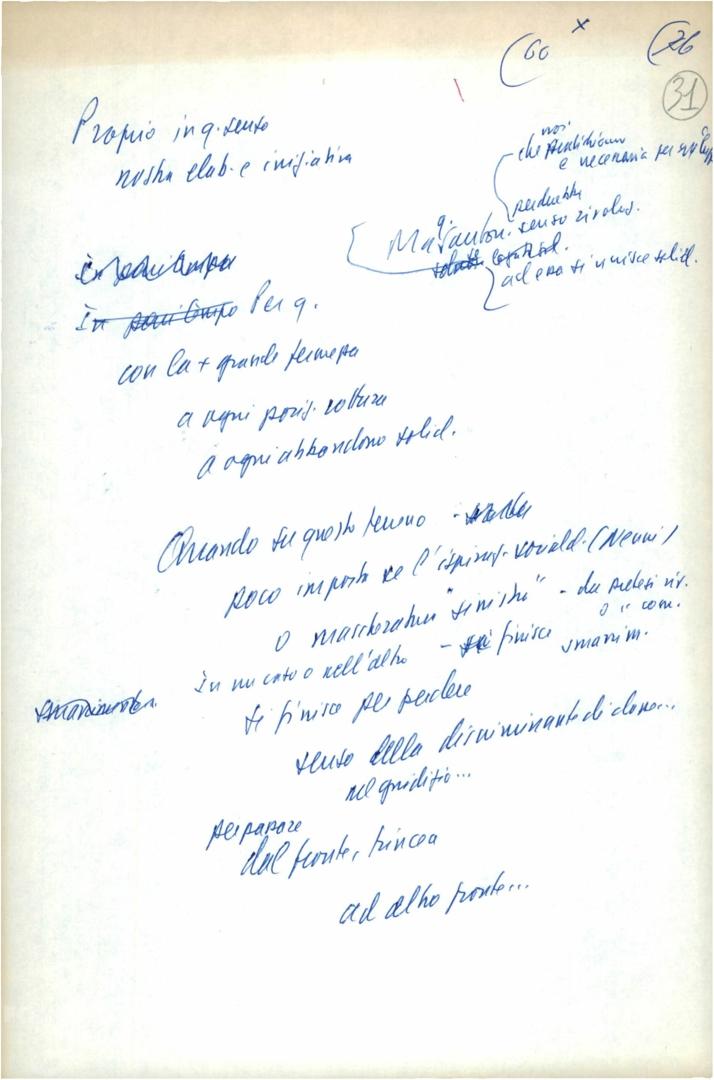 (60 x (26
31
Proprio in q. senso
nostra elab. e iniziativa
noi
che
e necessaria per
perderebbe
Ma q. senso rivoluz.
ad essa si unisce solid.
In pari tempo
In pari tempo Per q.
con la + grande fermezza
a ogni posiz. rottura
a ogni abbandono solid.
Quando su questo terreno -
poco importa se l'ispiraz. sociald. (Nenni)
o mascheratura "sinistra" - da pretesi riv.
o " com.
In un caso o nell'altro - si finisce smarrim.
smarrimento
si finisce per perdere
senso della discriminante di classe...
nel giudizio...
per passare
dal fronte, trincea
ad altro fronte...